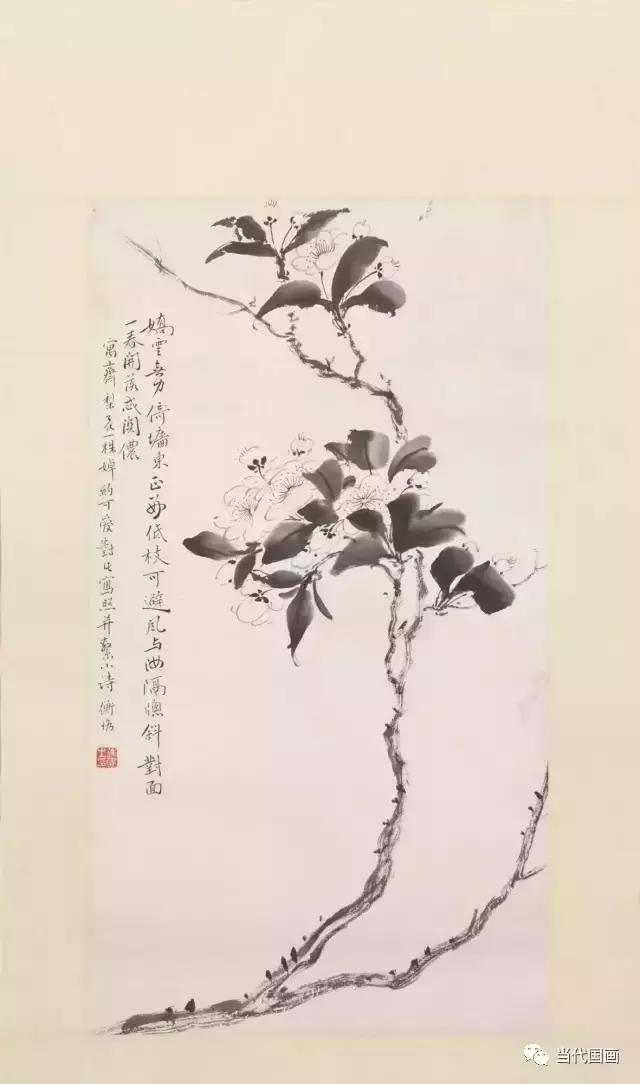 嬌雲無力倚墻東正好低枝可避風与汝隔牕斜對面
一春開落忒関儂
寓齋梨花一株婥約可愛對之寫照并繫小詩 衡
当代国画